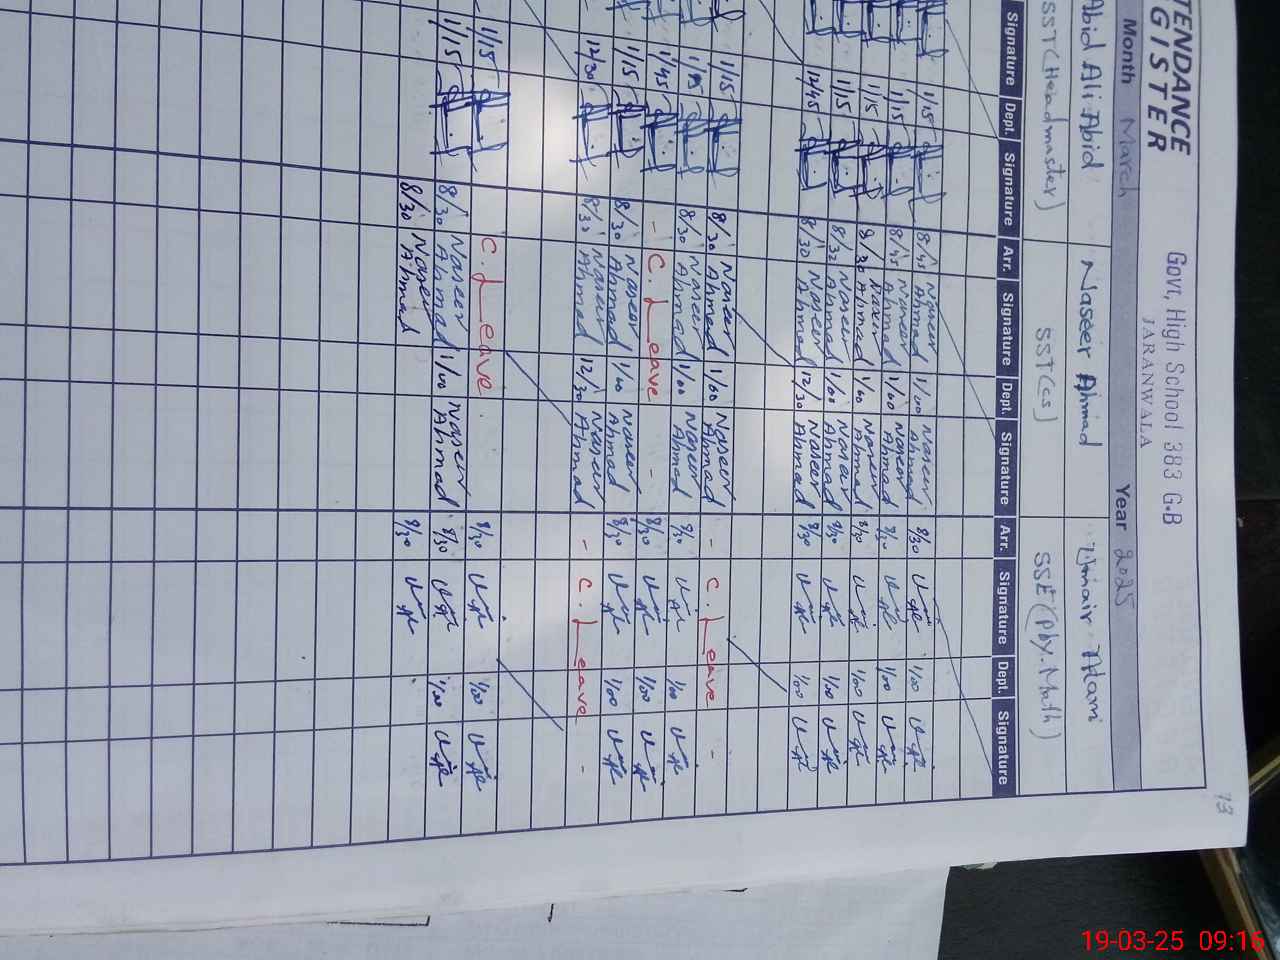 TENDANCE
GISTER
Govt, High School 383 G.B
JARANWALA
13
Month March Year 2025
Abid Ali Abid Naseer Ahmad Umair Atami
SST(Headmaster) SST(CS) SSE(Phy.Math)
Signature Dept. Signature Arr. Signature Dept. Signature Arr. Signature Dept. Signature
1/15 8/45 Naseer Ahmad 1/00 Naseer Ahmad 8/30 1/00
1/15 8/45 Naseer Ahmad 1/00 Naseer Ahmad 8/30 1/00
1/15 8/30 Naseer Ahmad 1/00 Naseer Ahmad 8/30 1/00
1/15 8/32 Naseer Ahmad 1/00 Naseer Ahmad 8/30 1/00
12/45 8/30 Naseer Ahmad 12/30 Naseer Ahmad 8/30 1/00
1/15 8/30 Naseer Ahmad 1/00 Naseer Ahmad - C. Leave -
1/45 8/30 Naseer Ahmad 1/00 Naseer Ahmad 8/30 1/00
1/45 - C. Leave - 8/30 1/00
1/15 8/30 Naseer Ahmad 1/00 Naseer Ahmad 8/30 1/00
12/30 8/30 Naseer Ahmad 12/30 Naseer Ahmad - C. Leave -
1/15 C. Leave 8/30 1/00
1/15 8/30 Naseer Ahmad 1/00 Naseer Ahmad 8/30 1/00
8/30 Naseer Ahmad 8/30
19-03-25 09:16